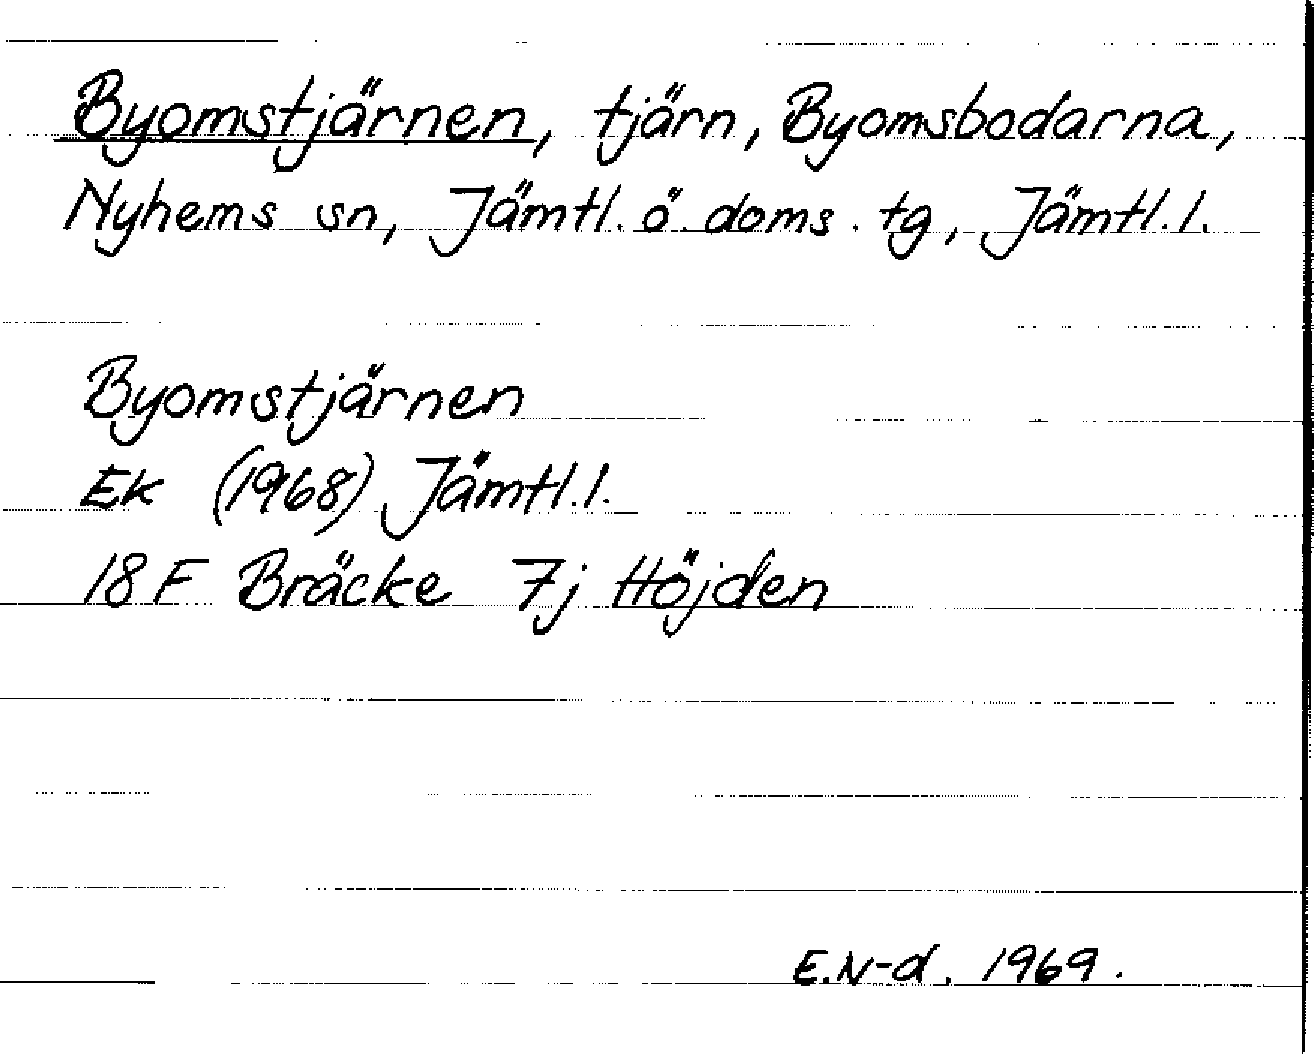 Byomstjärnen, tjärn, Byomsbodarna,
Nyhems sn, Jämtl. ö. doms. tg, Jämtl. l.
Byomstjärnen
Ek (1968) Jämtl. l.
18 F Bräcke 7j Höjden
E.N-d. 1969.